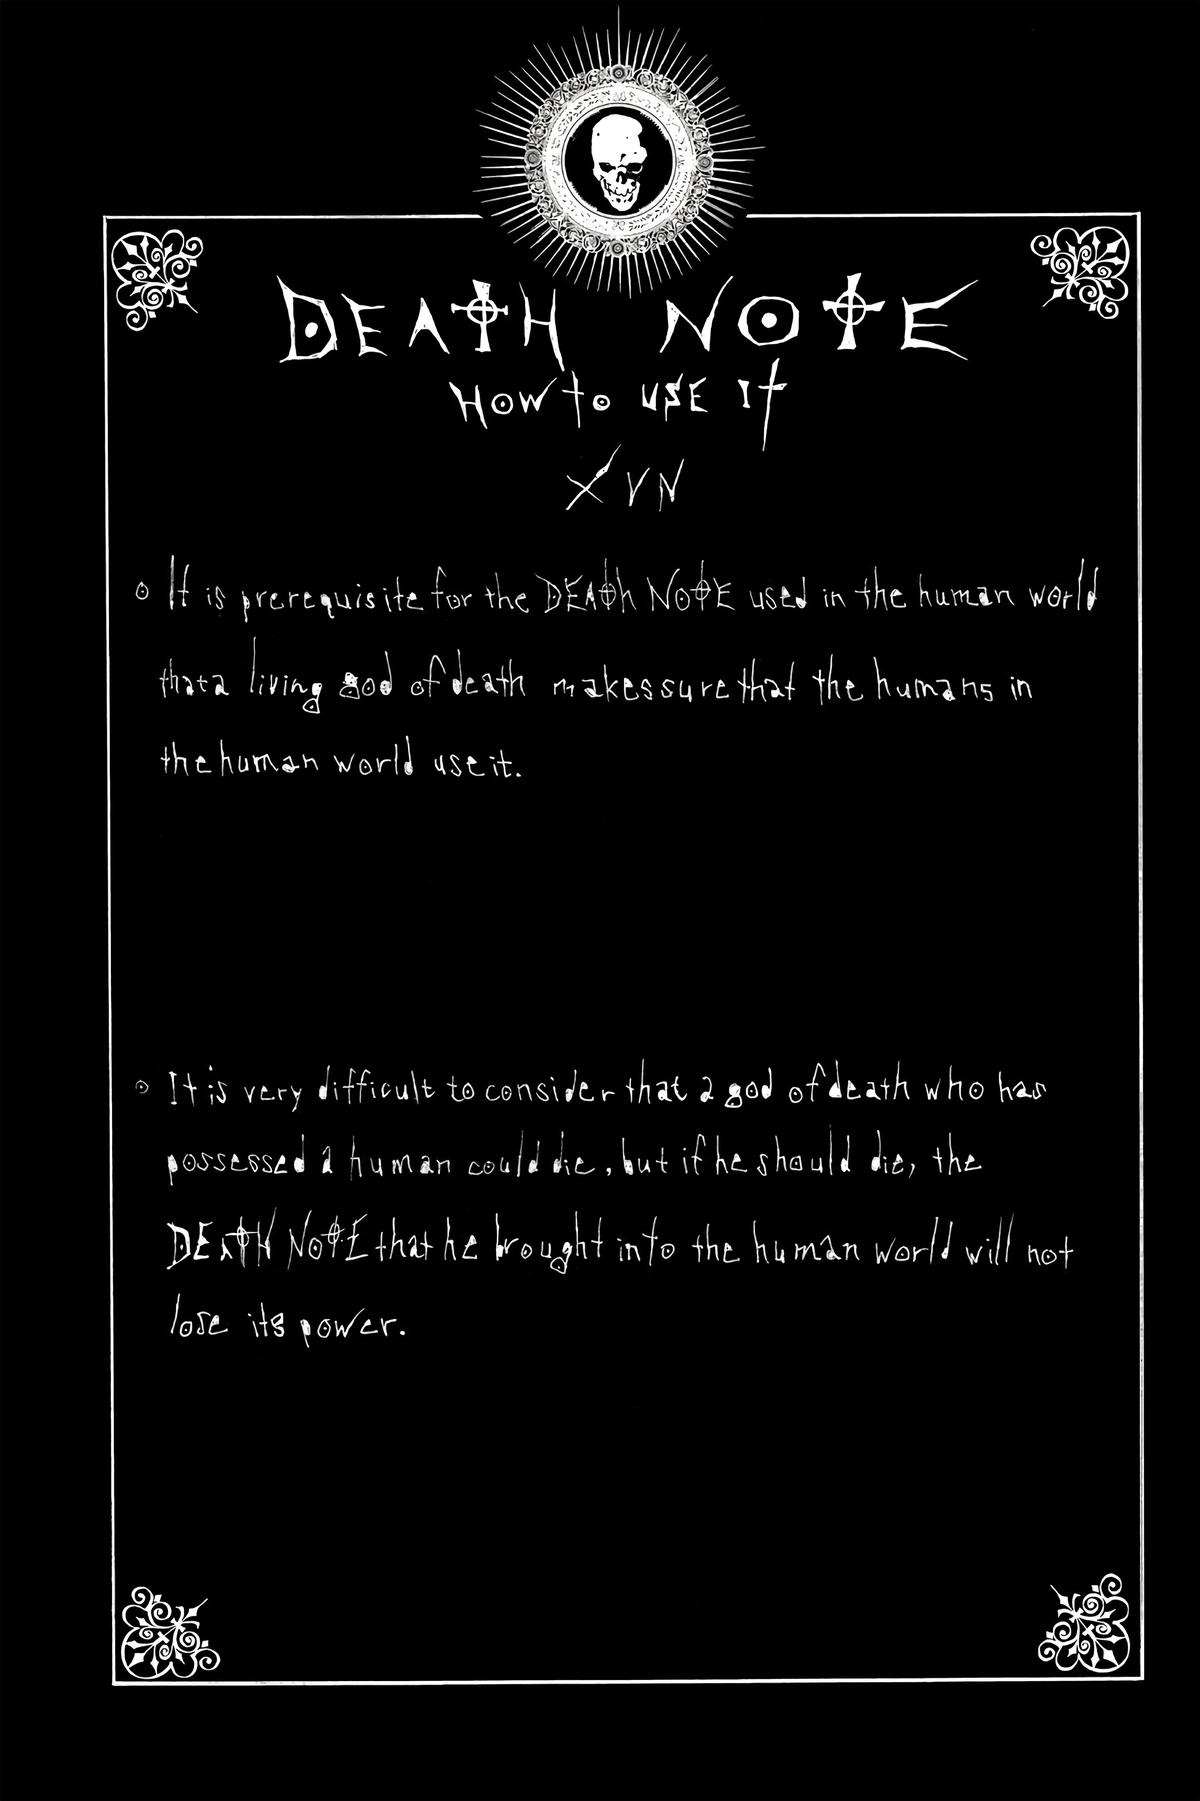 DEATH NOTE
HOW to USE It
XVII
It is prerequisite for the DEATH NOTE used in the human world
that a living god of death makes sure that the humans in
the human world use it.
It is very difficult to consider that a god of death who has
possessed a human could die, but if he should die, the
DEATH NOTE that he brought into the human world will not
lose its power.